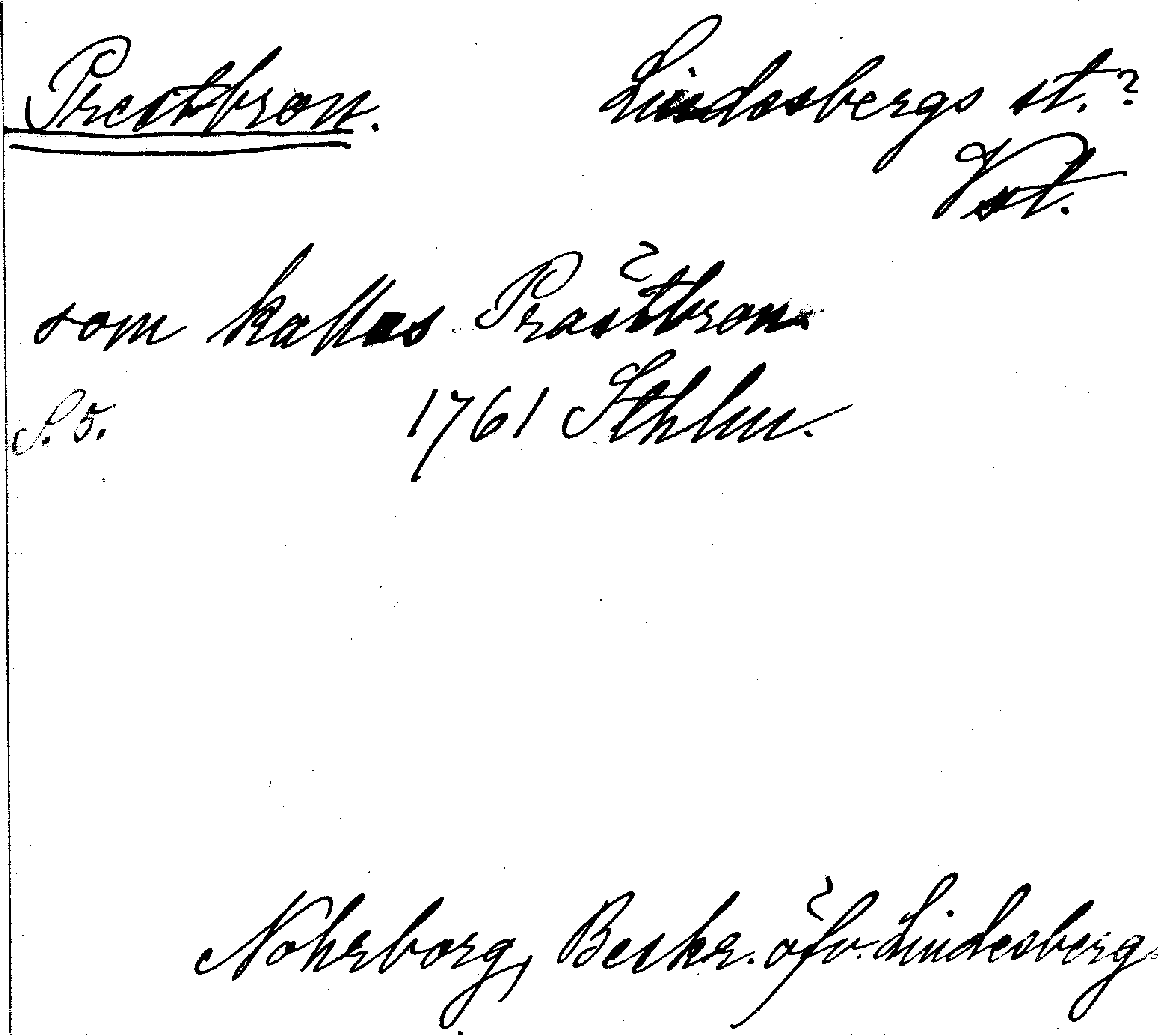 Prestbron. Lindesbergs st.?
Vst.
som kallas Prästbron
S. 5. 1761 Sthlm.
Nohrborg, Beskr. öfv. Lindesberg.